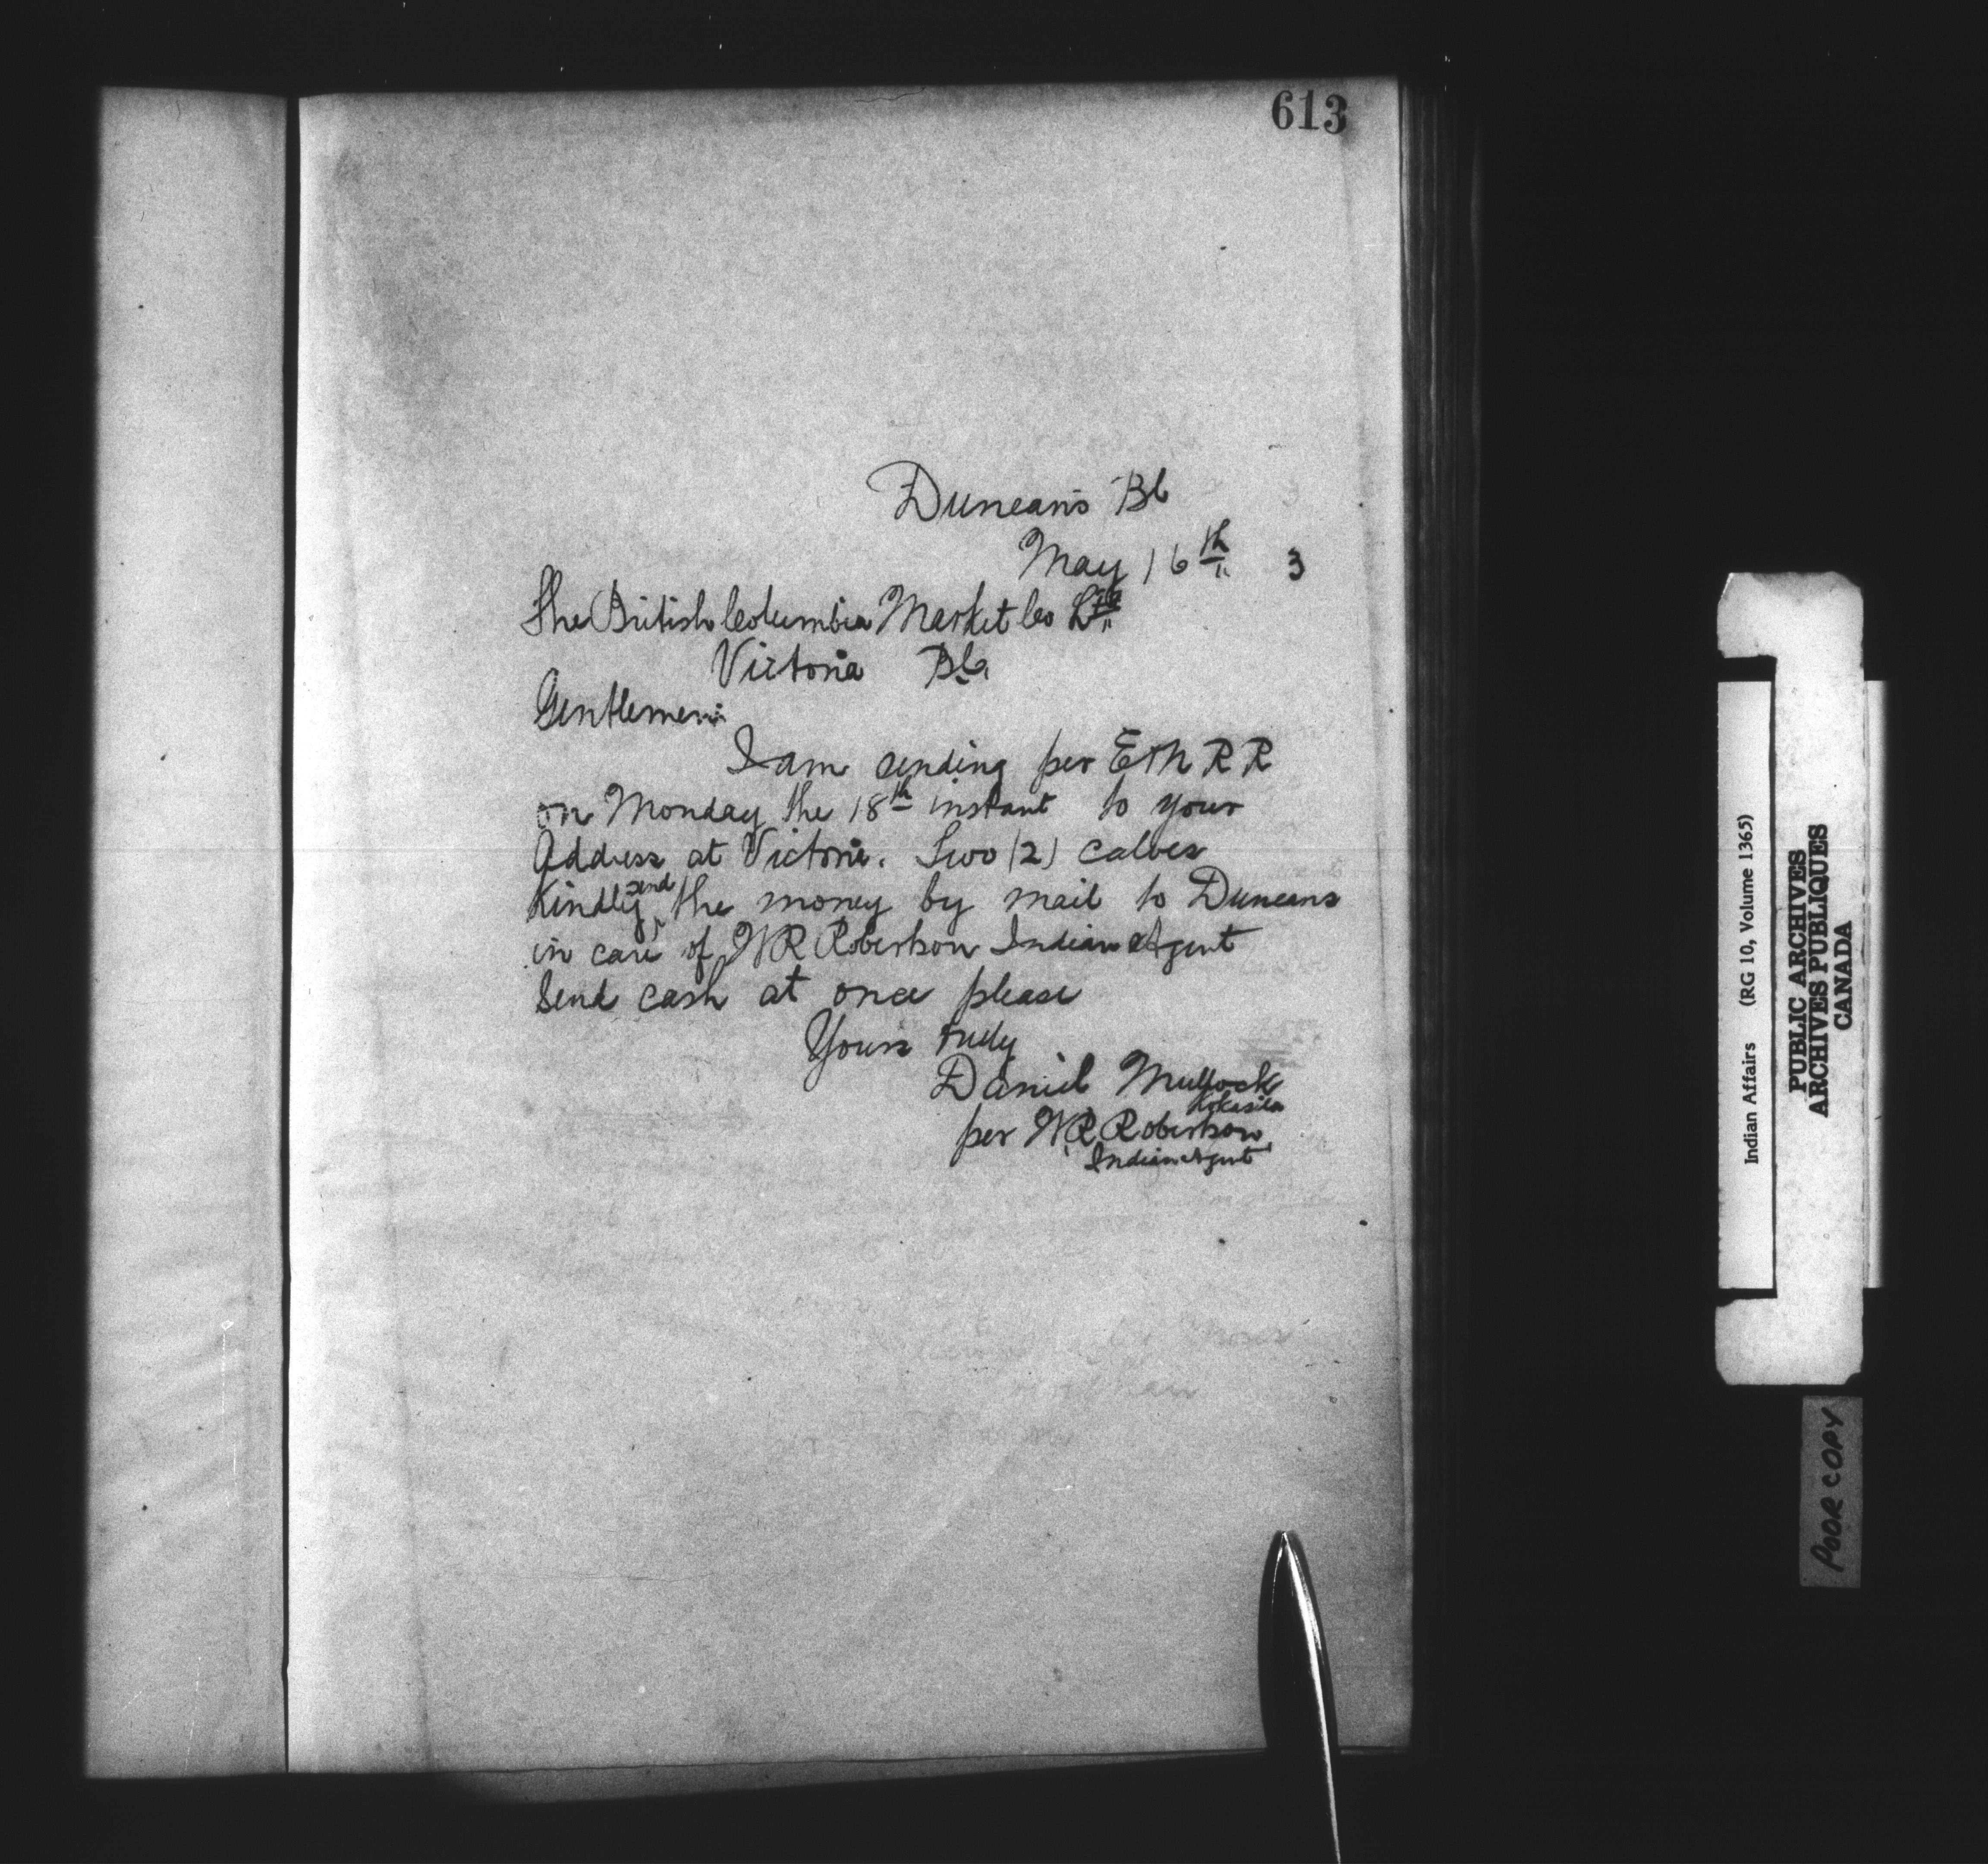 613
Duncans BC
May 16th 3
The British Columbia Market Co Ltd
Victoria BC,
Gentlemen:
I am sending per E & N R R
on Monday the 18th instant to your
Address at Victoria. Two (2) calves
Kindly send the money by mail to Duncans
in care of WR Robertson Indian Agent
Send cash at once please
Yours truly
Daniel Mullock
Kokasila
per WR Robertson
Indian Agent
Indian Affairs (RG 10, Volume 1365)
PUBLIC ARCHIVES
ARCHIVES PUBLIQUES
CANADA
POOR COPY